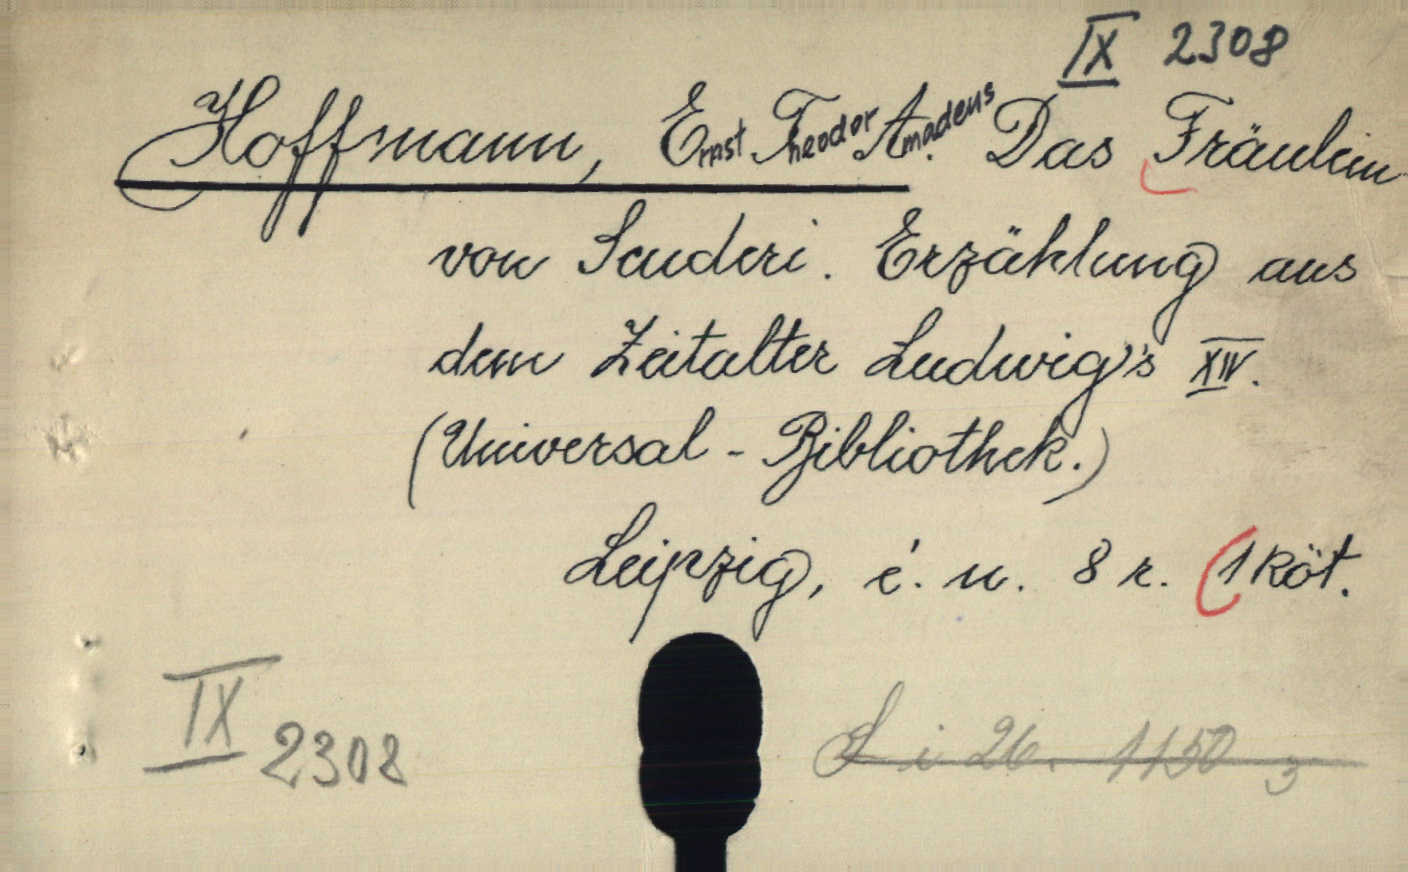 IX 2308
Hoffmann, Ernst Theodor Amadeus. Das Fräulein
von Scuderi. Erzählung aus
dem Zeitalter Ludwig's XIV.
(Universal-Bibliothek.)
Leipzig, é. n. 8 r. (1 köt.
IX 2308
L i 26. 1150 3